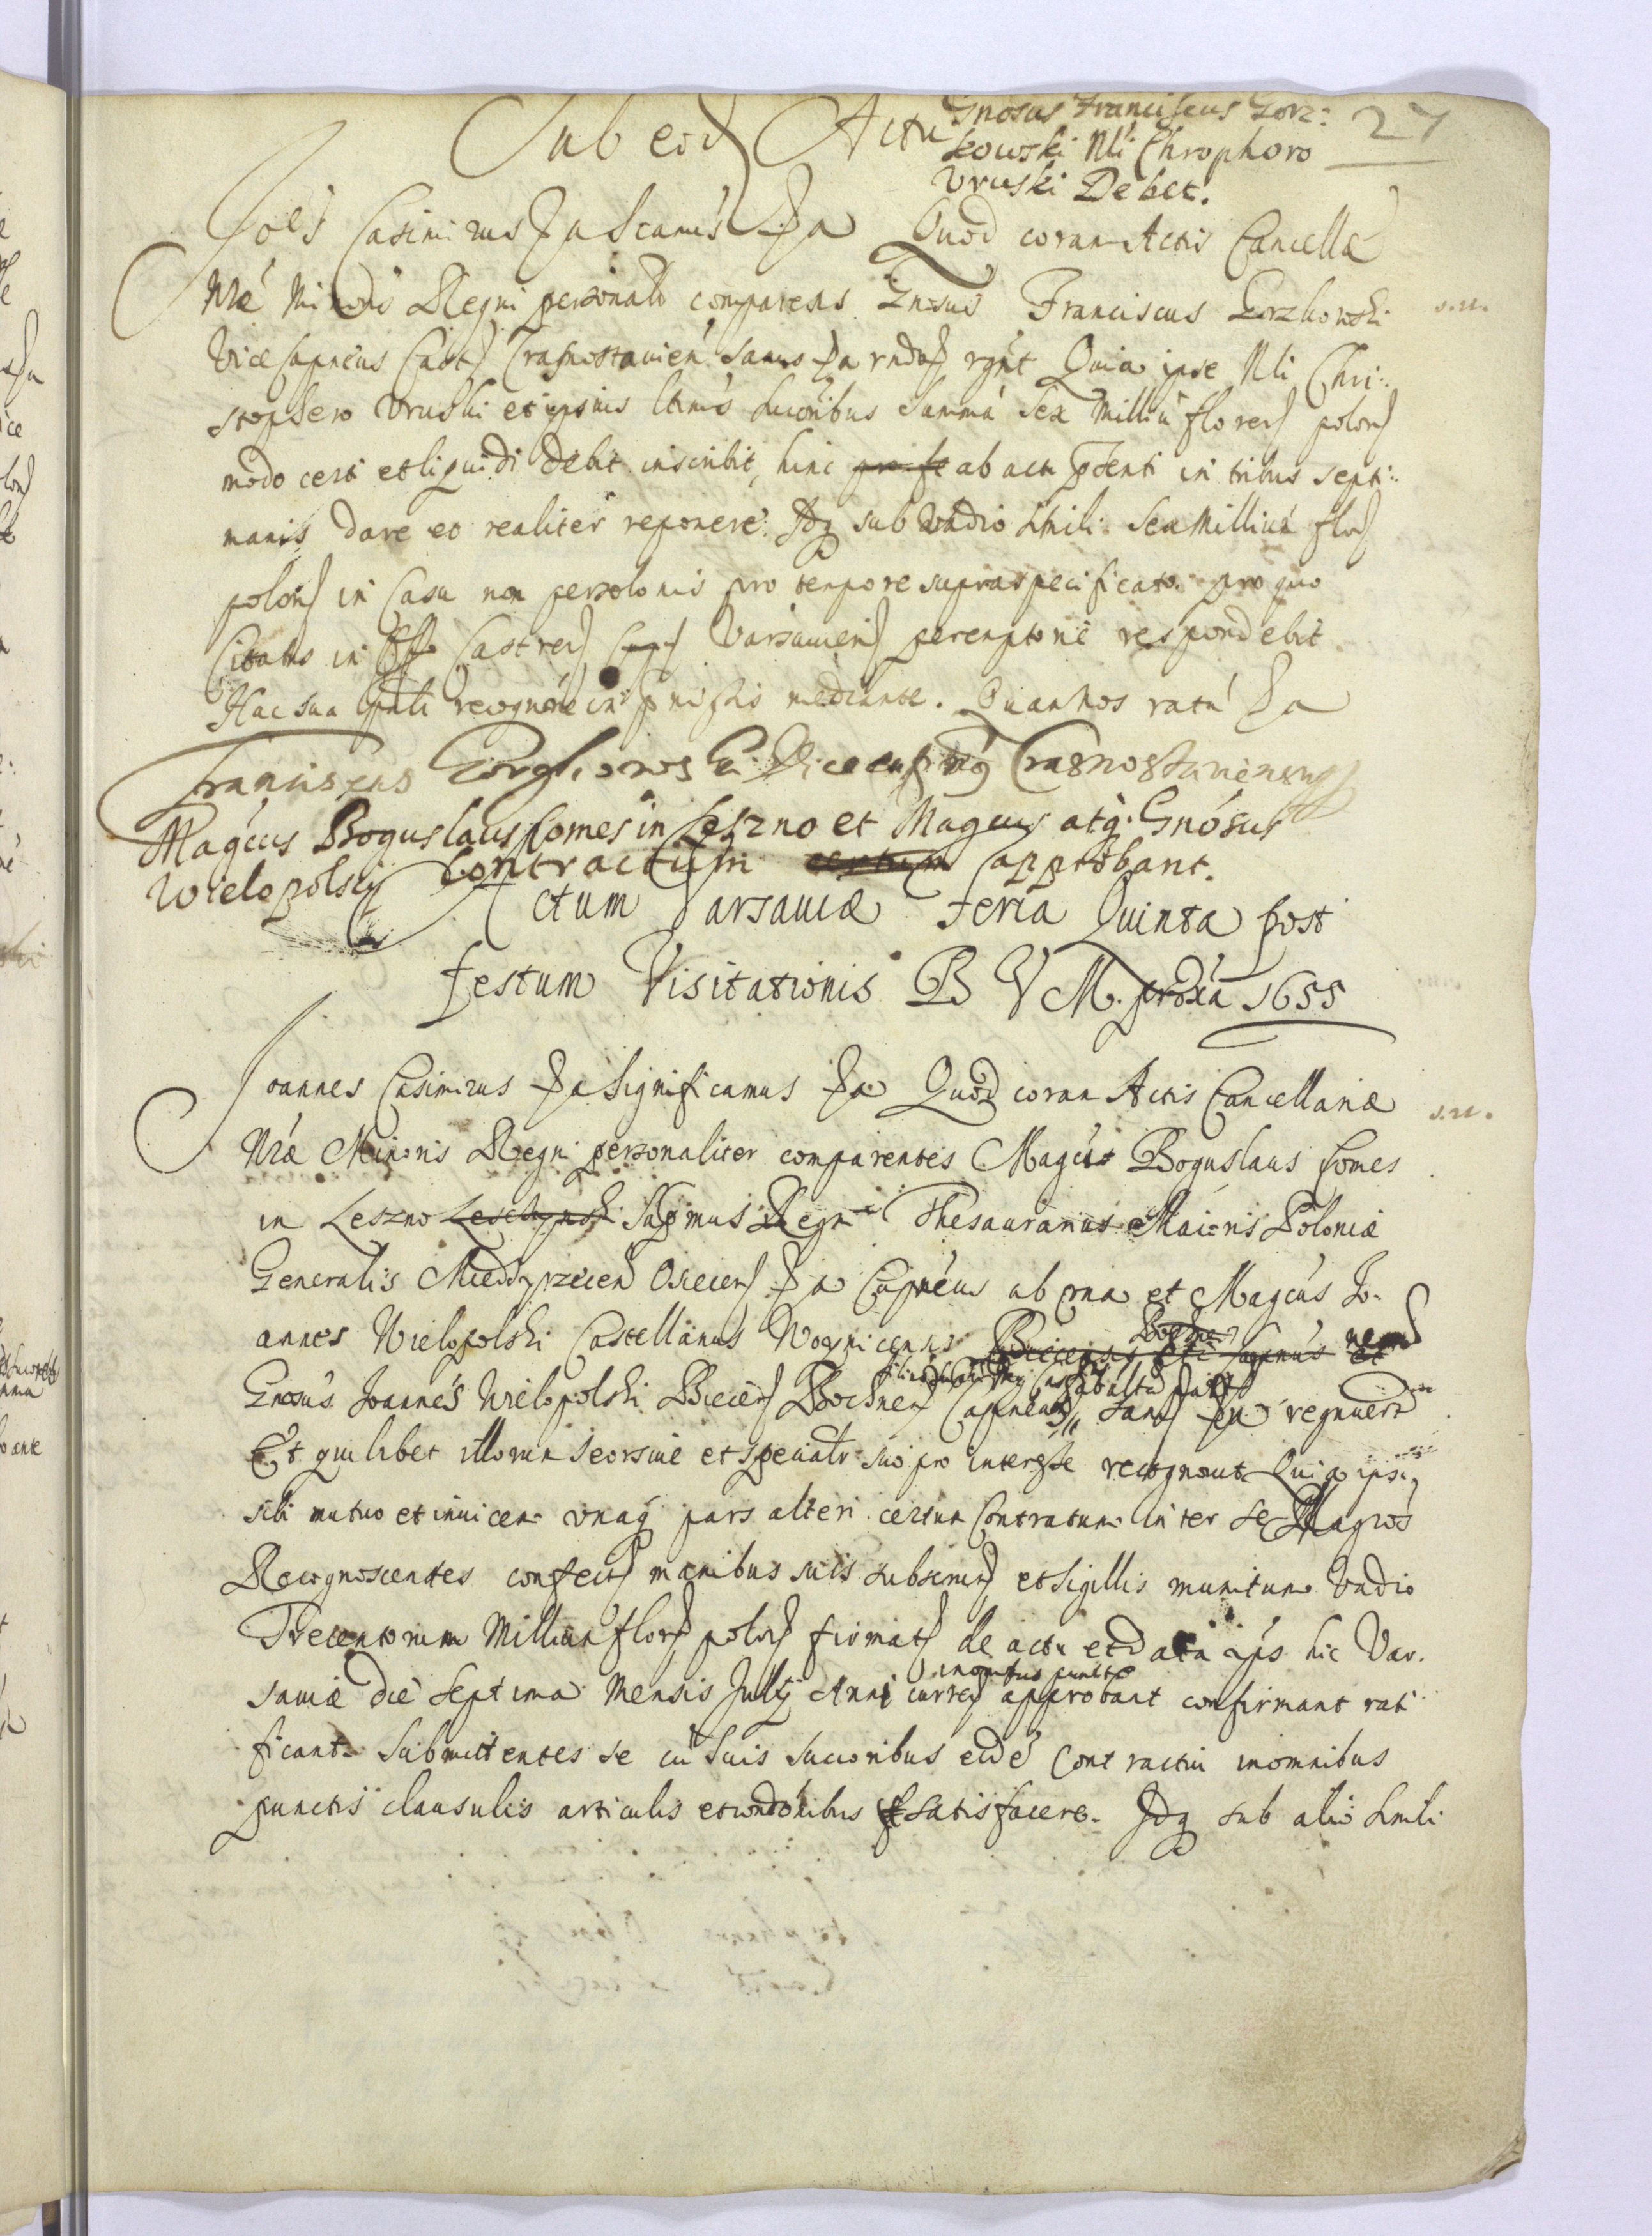 27
Sub eod Actu
Gnosus Franciscus Gorz:
kowski Nli Chrophoro
Vruski Debet.
Joes Casimirus &a Scamus &a Quod coram Actis Cancellae
Nrae Minoris Regni personalr comparens Gnosus Franciscus Gorzkowski
Vice Capneus Castr Crasnostauien sanus &a rndo rgnt Quia ipse Nli Chri:
stophero Vruski et ipsius ltimis succribus summa Sex Milliu floren polon
modo certi et liquidi debit inscribit, hinc ab actu pdenti in tribus septi:
manis dare et realiter reponere. Idq sub vadio simili Sex Milliu flor
polon in casu non persolonis pro tempore supraspecificato pro quo
Citatus in Offo Castren Varsauien peremptorie respondebit
Hac sua mediante. Quam nos ratu &a
Franciscus Crasnostaviensis
Magcus Boguslaus Comes in Leszno et Magcus atq. Gnosus
Wielopolscy Contractum certum approbant.
Actum Varsauiae Feria Quinta post
festum Visitationis B V M. proxa 1655
Joannes Casimirus &a Significamus &a Quod coram Actis Cancellariae
Nrae Minoris Regni personaliter comparentes Magcus Boguslaus Comes
in Leszno Leschynski Supmus Regni Thesaurarius Maioris Poloniae
Generalis Miedzyrzecen Osiecen &a Capneus ab una et Magcus Jo-
annes Wielopolski Castellanus Woynicensis Biecensis Capneus et nec
Gnosus Joannes Wielopolski Biecen Bochnen Capneus ab altera sani &a
Et quilibet illorum seorsive et specialr suo pro interesse recognount Quia ipsi
sibi mutuo et inuicem vnaq pars alteri certum Contractum inter se Magcos
Recognoscentes confect manibus suis subscript et sigillis munitum vadio
Trecentorum Millium flor polon firmat de actu et data ips hic Var-
sauiae die septima Mensis Julij Anni curren approbant confirmant rati
ficant. Submittentes se cu suis succoribus eide Contractui in omnibus
punctis clausulis articulis et condonibus satisfacere. Idq sub alio simili